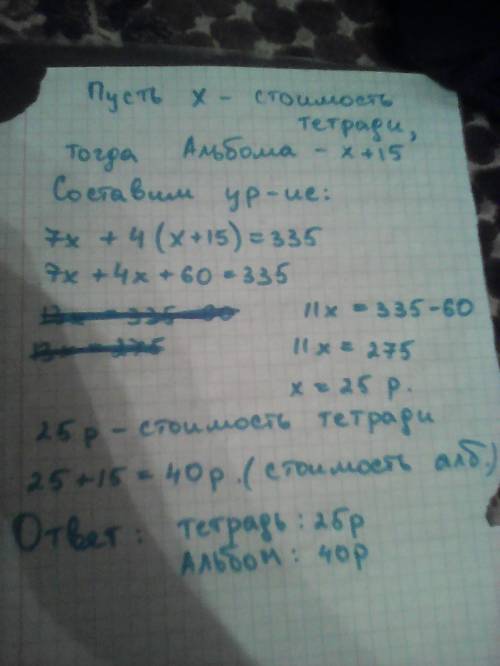 Пусть x - стоимость
тетради,
тогда Альбома - x+15
Составим ур-ие:
7x + 4(x+15)=335
7x+4x+60=335
13x = 335-60
11x = 335-60
13x = 275
11x = 275
x = 25 р.
25р - стоимость тетради
25+15 = 40р. (стоимость алб.)
Ответ: тетрадь: 25р
Альбом: 40р